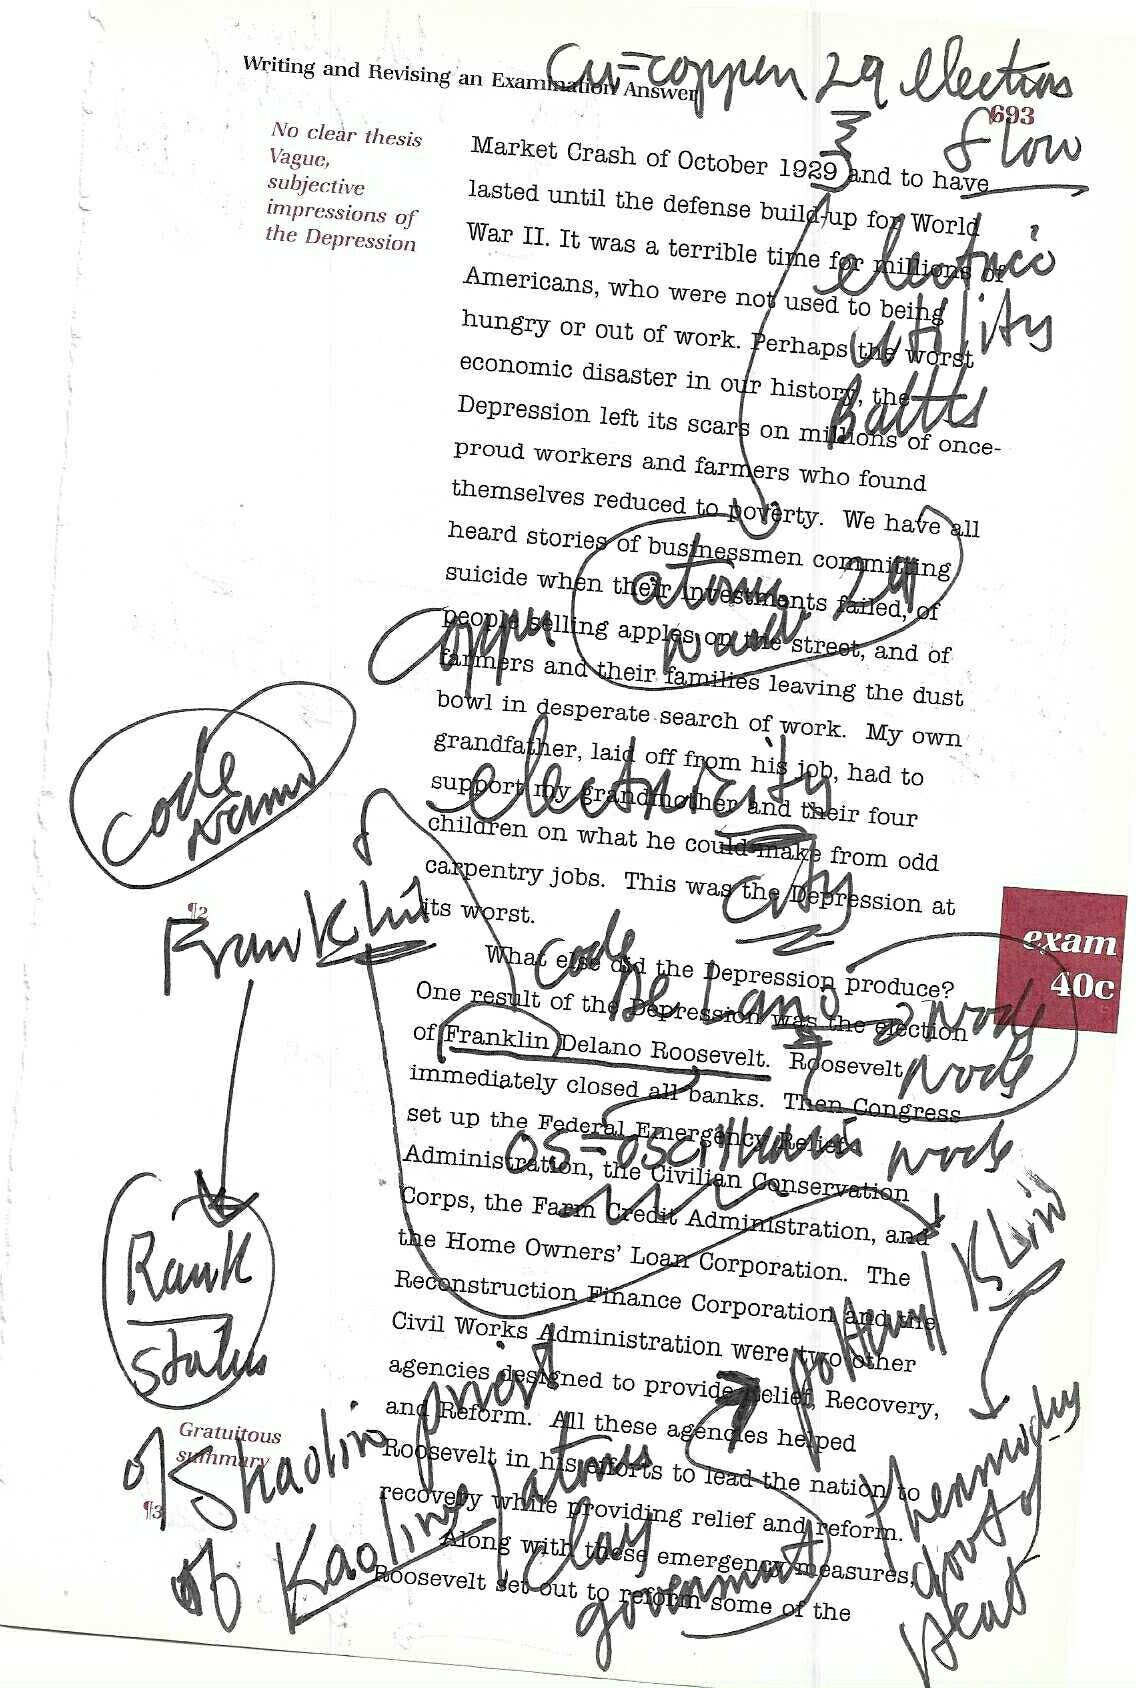 Writing and Revising an Examination Answer
693
Cu=copper 29 electrons
flow
No clear thesis
Vague,
subjective
impressions of
the Depression
Market Crash of October 1929 and to have
lasted until the defense build-up for World
War II. It was a terrible time for millions of
Americans, who were not used to being
hungry or out of work. Perhaps the worst
economic disaster in our history, the
Depression left its scars on millions of once-
proud workers and farmers who found
themselves reduced to poverty. We have all
heard stories of businessmen committing
suicide when their investments failed, of
people selling apples on the street, and of
farmers and their families leaving the dust
bowl in desperate search of work. My own
grandfather, laid off from his job, had to
support my grandmother and their four
children on what he could make from odd
carpentry jobs. This was the Depression at
its worst.
electric
utility
atomic 29
copper
electricity
city
code
names
¶2
Frankhin
Rank
status
of Shaolin priest
of Kaoline
atoms
clay
government
What else did the Depression produce?
One result of the Depression was the election
of Franklin Delano Roosevelt. Roosevelt
immediately closed all banks. Then Congress
set up the Federal Emergency Relief
Administration, the Civilian Conservation
Corps, the Farm Credit Administration, and
the Home Owners' Loan Corporation. The
Reconstruction Finance Corporation and the
Civil Works Administration were two other
agencies designed to provide Relief, Recovery,
and Reform. All these agencies helped
Roosevelt in his efforts to lead the nation to
recovery while providing relief and reform.
code
De Lano
node
node
os=oscillations node
pottery/Klin
heat
exam
40c
Gratuitous
summary
¶3
Along with these emergency measures,
Roosevelt set out to reform some of the